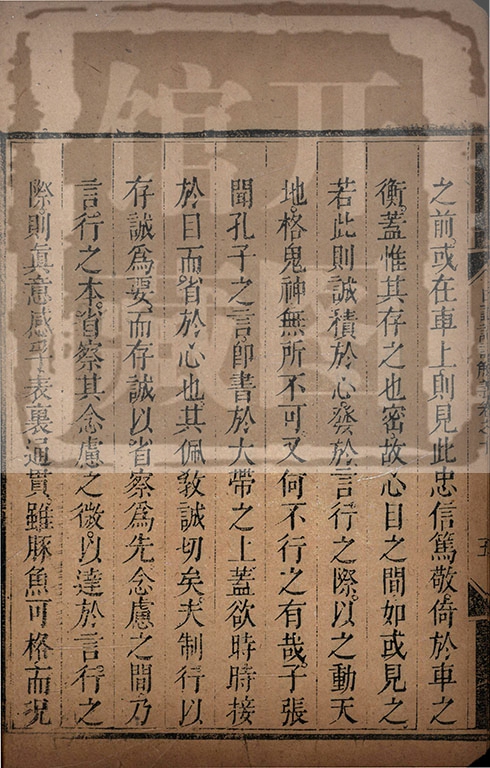 之前或在車上則見此忠信篤敬倚於車之
衡蓋惟其存之也密故心目之間如或見之
若此則誠積於心發於言行之際以之動天
地格鬼神無所不可又何不行之有哉子張
聞孔子之言卽書於大帶之上蓋欲時時接
於目而省於心也其佩敎誠切矣夫制行以
存誠爲要而存誠以省察爲先念慮之間乃
言行之本省察其念慮之微以達於言行之
際則眞意感乎表裏通貫雖豚魚可格而況